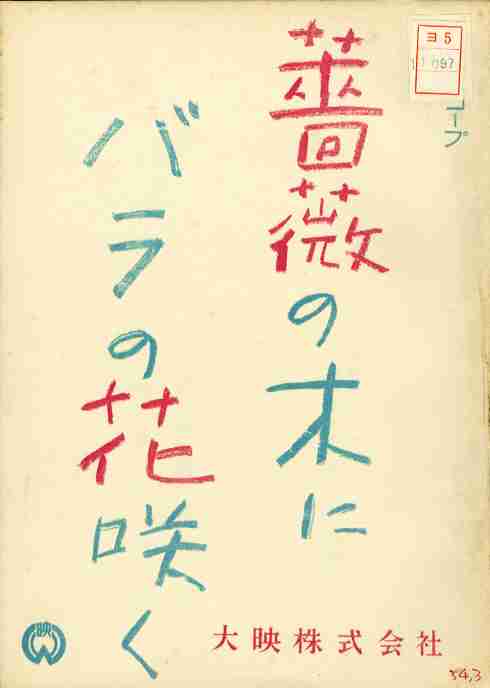 コープ
薔薇の木に
バラの花咲く
大映株式会社
ヨ5
映
34.3